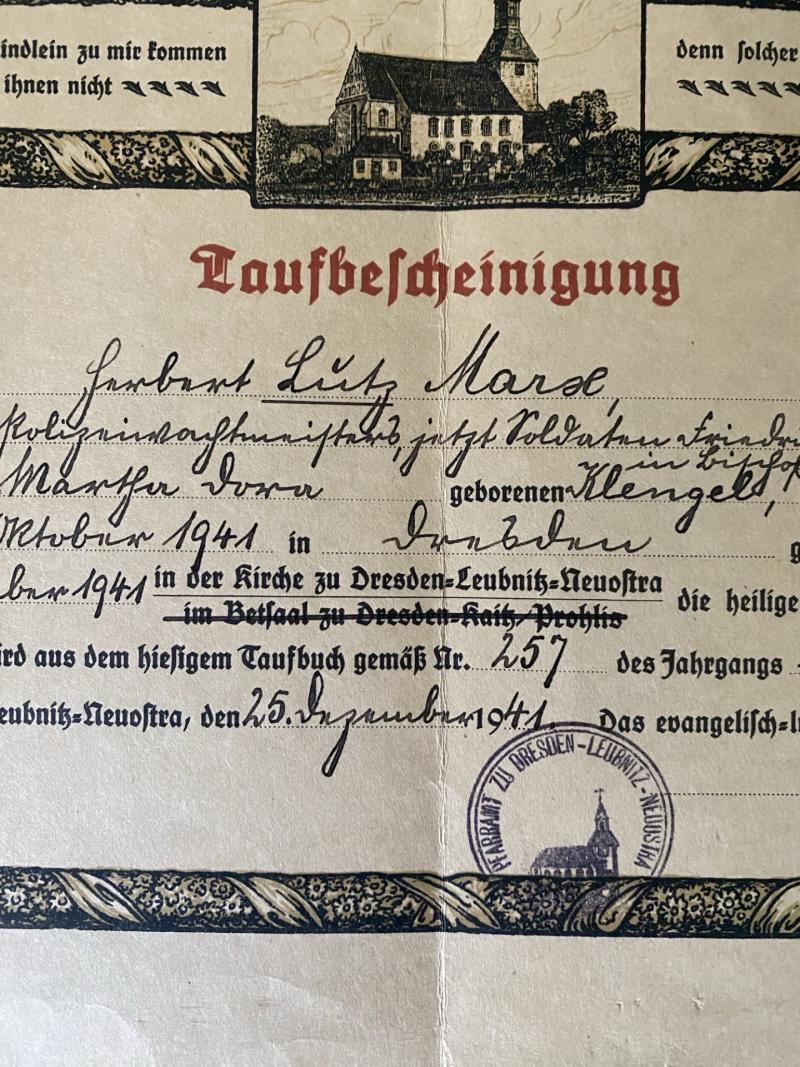 indlein zu mir kommen
ihnen nicht
denn solcher
Taufbescheinigung
Herbert Lutz Marx,
Polizeiwachtmeisters, jetzt Soldaten Friedri
in Bischof
Martha Dora geborenen Klengel,
Oktober 1941 in Dresden g
ber 1941 in der Kirche zu Dresden-Leubnitz-Neuostra die heilige
im Betsaal zu Dresden-Kaitz/Prohlis
ird aus dem hiesigem Taufbuch gemäß Nr. 257 des Jahrgangs
eubnitz-Neuostra, den 25. Dezember 1941. Das evangelisch-l
PFARRAMT ZU DRESDEN-LEUBNITZ-NEUOSTRA